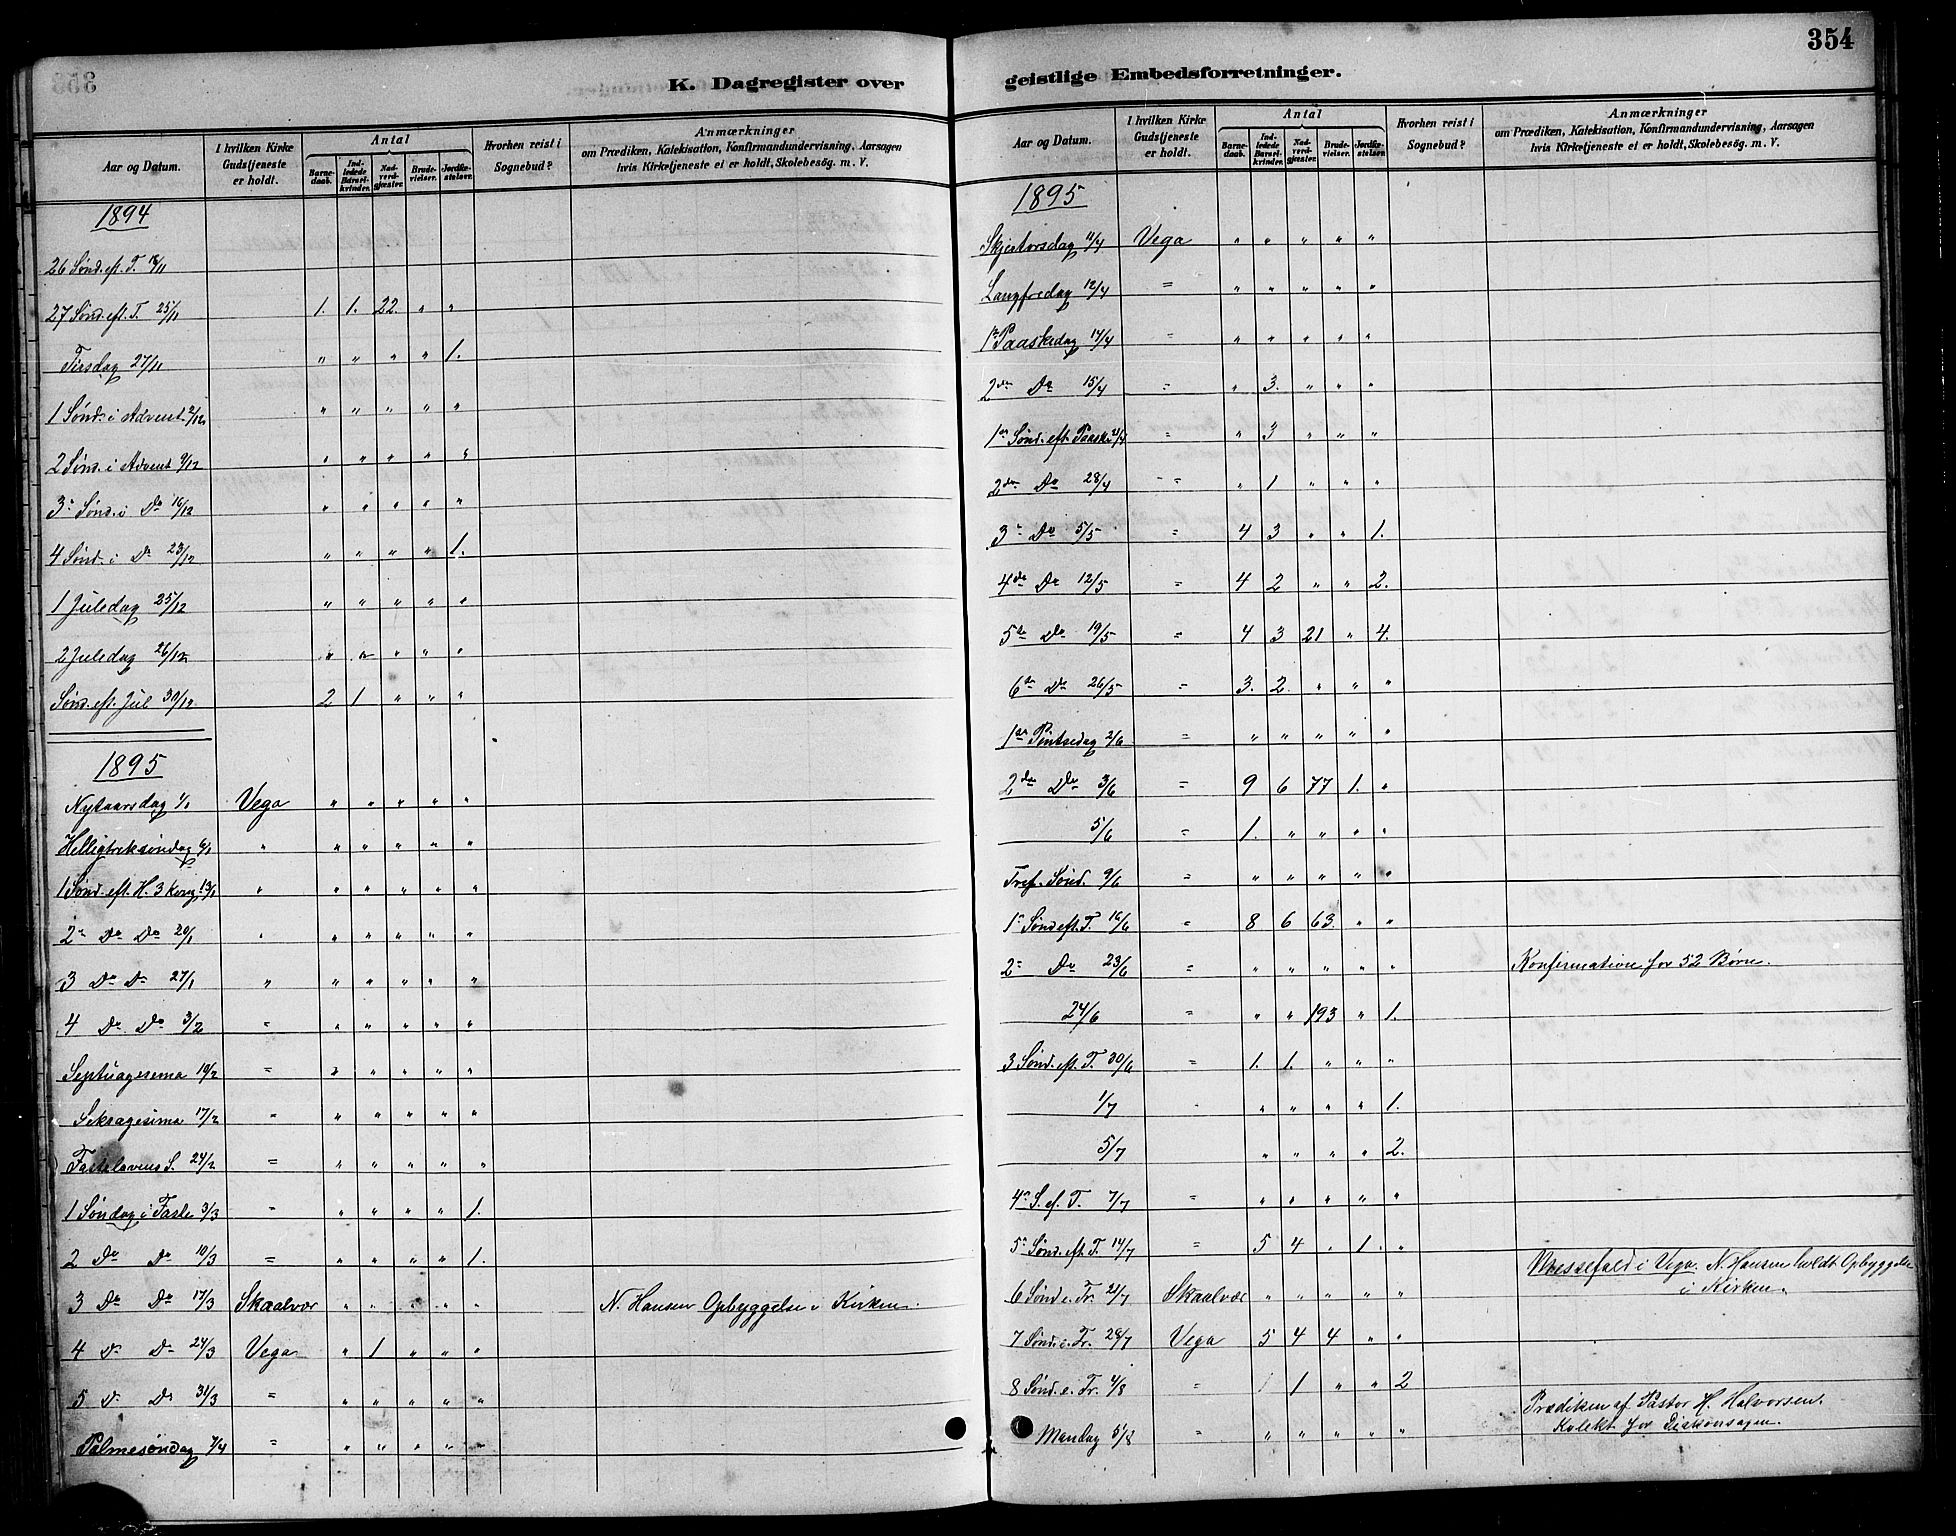 K. Dagregister over
Aar og Datum. I hvilken Kirke Gudstjeneste er holdt. Antal Barnedaab. Indledede Barselkvinder. Nadverdgjæster. Brudevielser. Jordfæstelser. Hvorhen reist i Sognebud? Anmærkninger om Prædiken, Katekisation, Konfirmandundervisning, Aarsagen hvis Kirketjeneste ei er holdt, Skolebesøg. m. V.
1894
26 Sønd. eft. T. 18/11
27 Sønd. eft. T. 25/11 1. 1. 22. " "
Tirsdag 27/11 " " " " 1.
1 Sønd. i Advent 2/12 " " " " "
2 Sønd. i Advent 9/12 " " " " "
3die Sønd. i Do 16/12 " " " " "
4 Sønd. i Do 23/12 " " " " 1.
1 Juledag 25/12 " " " " "
2 Juledag 26/12 " " " " "
Sønd. eft. Jul 30/12 2 1 " " "
1895
Nytaarsdag 1/1 Vega " " " " "
Helligtreksøndag 6/1 " " " " " "
1 Sønd. eft. H. 3 Kong. 13/1 " " " " " "
2n Do Do 20/1 " " " " " "
3 Do Do 27/1 " " " " " "
4 Do Do 3/2 = " " " " "
Septuagesema 10/2 = " " " " "
Seksagesima 17/2 = " " " " "
Fastelavens S. 24/2 = " " " " "
1 Søndag i Faste 3/3 = " " " " 1.
2 Do Do 10/3 = " " " " 1.
3 Do Do 17/3 Skaalvær " " " " " N. Hansen Opbyggelse i Kirken.
4 Do Do 24/3 Vega " 1 " " "
5 Do Do 31/3 = " " " " "
Palmesøndag 7/4 = " " " " "
354
geistlige Embedsforretninger.
Aar og Datum. I hvilken Kirke Gudstjeneste er holdt. Antal Barnedaab. Indledede Barselkvinder. Nadverdgjæster. Brudevielser. Jordfæstelser. Hvorhen reist i Sognebud? Anmærkninger om Prædiken, Katekisation, Konfirmandundervisning, Aarsagen hvis Kirketjeneste ei er holdt, Skolebesøg. m. V.
1895
Skjertorsdag 11/4 Vega " " " " "
Langfredag 12/4 = " " " " "
1ste Paaskedag 14/4 = " " " " "
2den Do 15/4 = " 3. " " "
1ste Sønd. eft. Paaske 21/4 = " 3 " " "
2den Do 28/4 = " 1 " " "
3die Do 5/5 = 4 3 " " 1.
4de Do 12/5 = 4 2 " " 2.
5te Do 19/5 = 4 3 21 " 4.
6te Do 26/5 = 3. 2. " " "
1ste Pintsedag 2/6 = " " " " "
2den Do 3/6 = 9 6 77 1. "
5/6 = 1. " " " "
Tref. Sønd. 9/6 = " " " " "
1ste Sønd eft. T. 16/6 = 8 6 63. " "
2den Do 23/6 = " " " " " Konfirmation for 52 Børn.
24/6 = " " 193 " 1.
3 Sønd. eft. T. 30/6 = 1. 1. " " "
1/7 " " " " 1.
5/7 " " " " 2.
4de S. ef. T. 7/7 = " " " " "
5te Sønd. eft. T. 14/7 = 5 4 " 1. "
6 Sønd e. Tr. 21/7 Skaalvær " " " " " Messefald i Vega. N. Hansen holdt Opbyggelse
i Kirken.
7 Sønd. e. Tr. 28/7 Vega 5 4 4 " "
8 Sønd. e. Tr. 4/8 = 1 1 " " 2
Mandag 5/8 = " " " " " Prædiken af Pastor H. Halvorsen.
Kolekt for Diakonsagen.